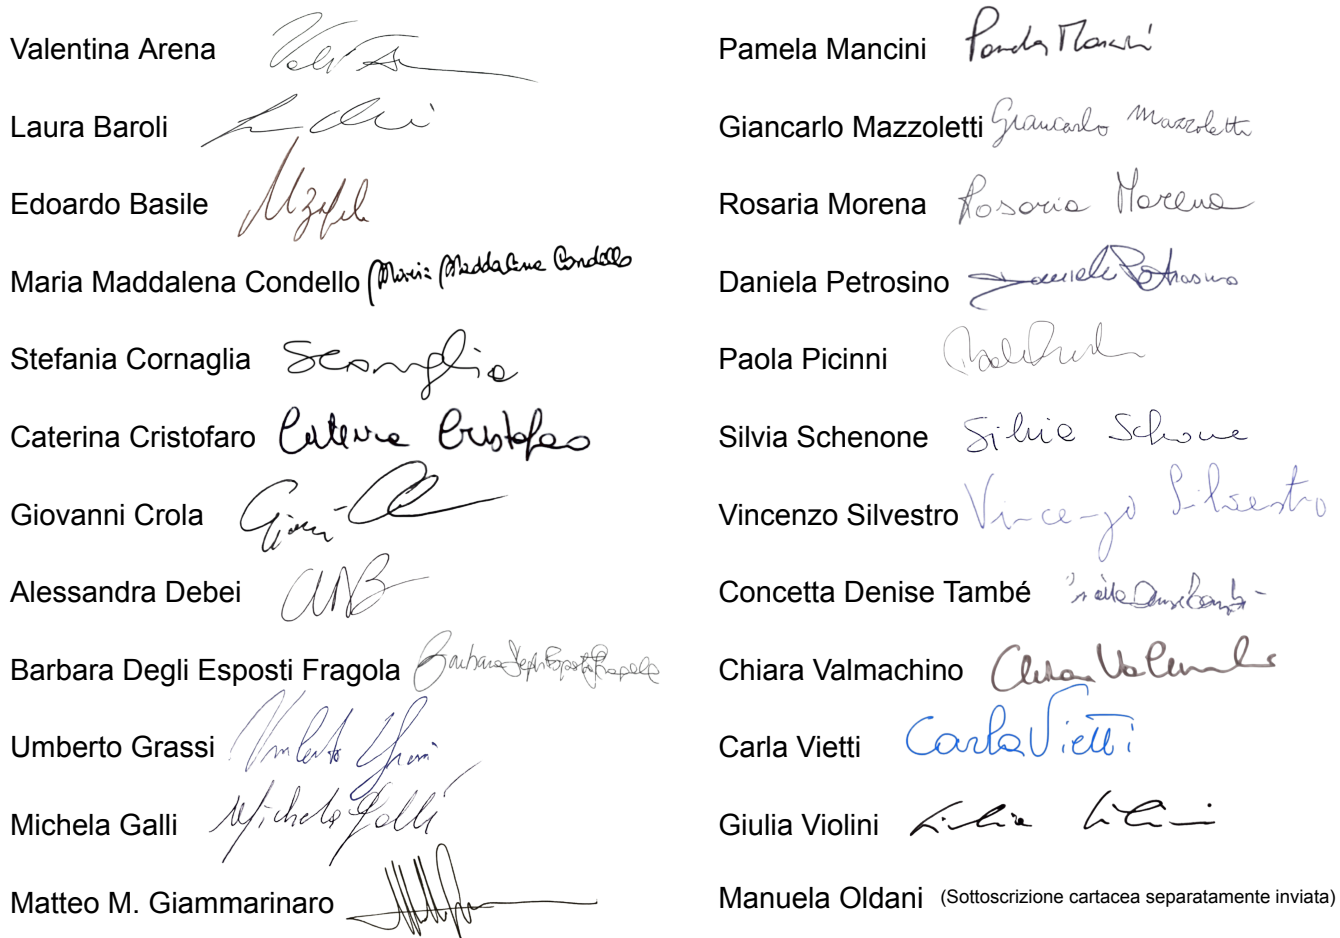 Valentina Arena
Laura Baroli
Edoardo Basile
Maria Maddalena Condello Maria Maddalena Condello
Stefania Cornaglia
Caterina Cristofaro Caterina Cristofaro
Giovanni Crola
Alessandra Debei
Barbara Degli Esposti Fragola Barbara Degli Esposti Fragola
Umberto Grassi Umberto
Michela Galli Michela Galli
Matteo M. Giammarinaro
Pamela Mancini Pamela Mancini
Giancarlo Mazzoletti Giancarlo Mazzoletti
Rosaria Morena Rosaria Morena
Daniela Petrosino Daniela Petrosino
Paola Picinni
Silvia Schenone Silvia Schenone
Vincenzo Silvestro Vincenzo Silvestro
Concetta Denise També
Chiara Valmachino Chiara
Carla Vietti Carla Vietti
Giulia Violini
Manuela Oldani (Sottoscrizione cartacea separatamente inviata)